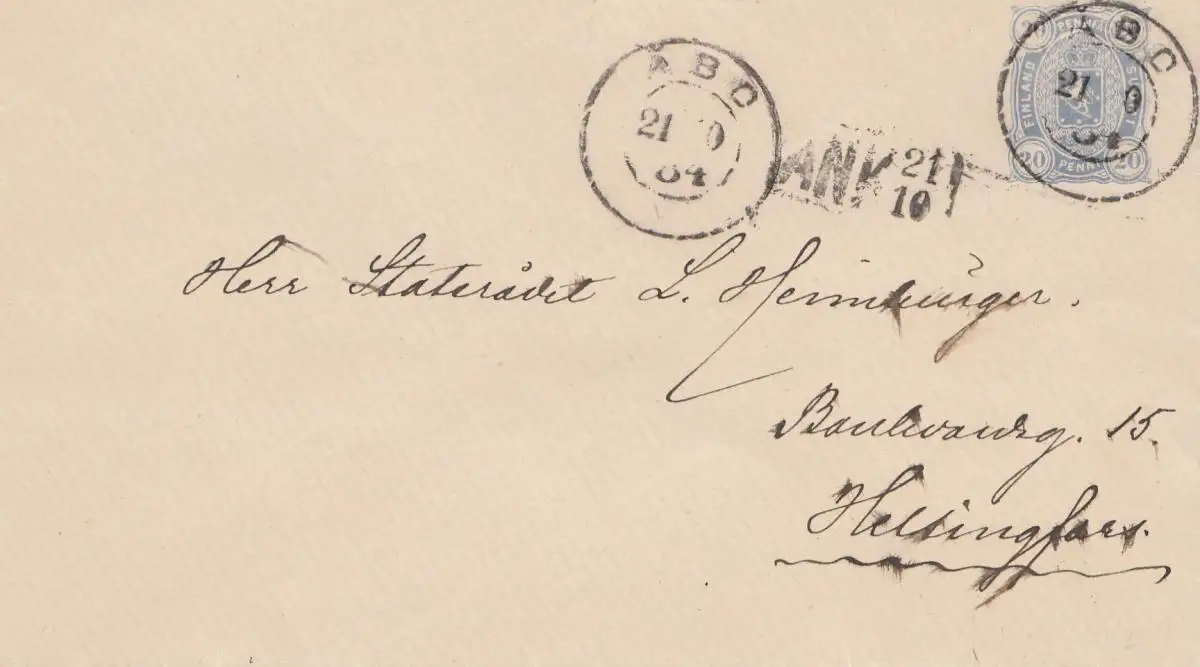 ÅBO
21 10
84
ANK 21
10
20 PENNIÄ 20
FINLAND
20 PENNI 20
ÅBO
21 10
84
Herr Statsrådet L. Heimbürger.
Boulevardsg. 15.
Helsingfors.